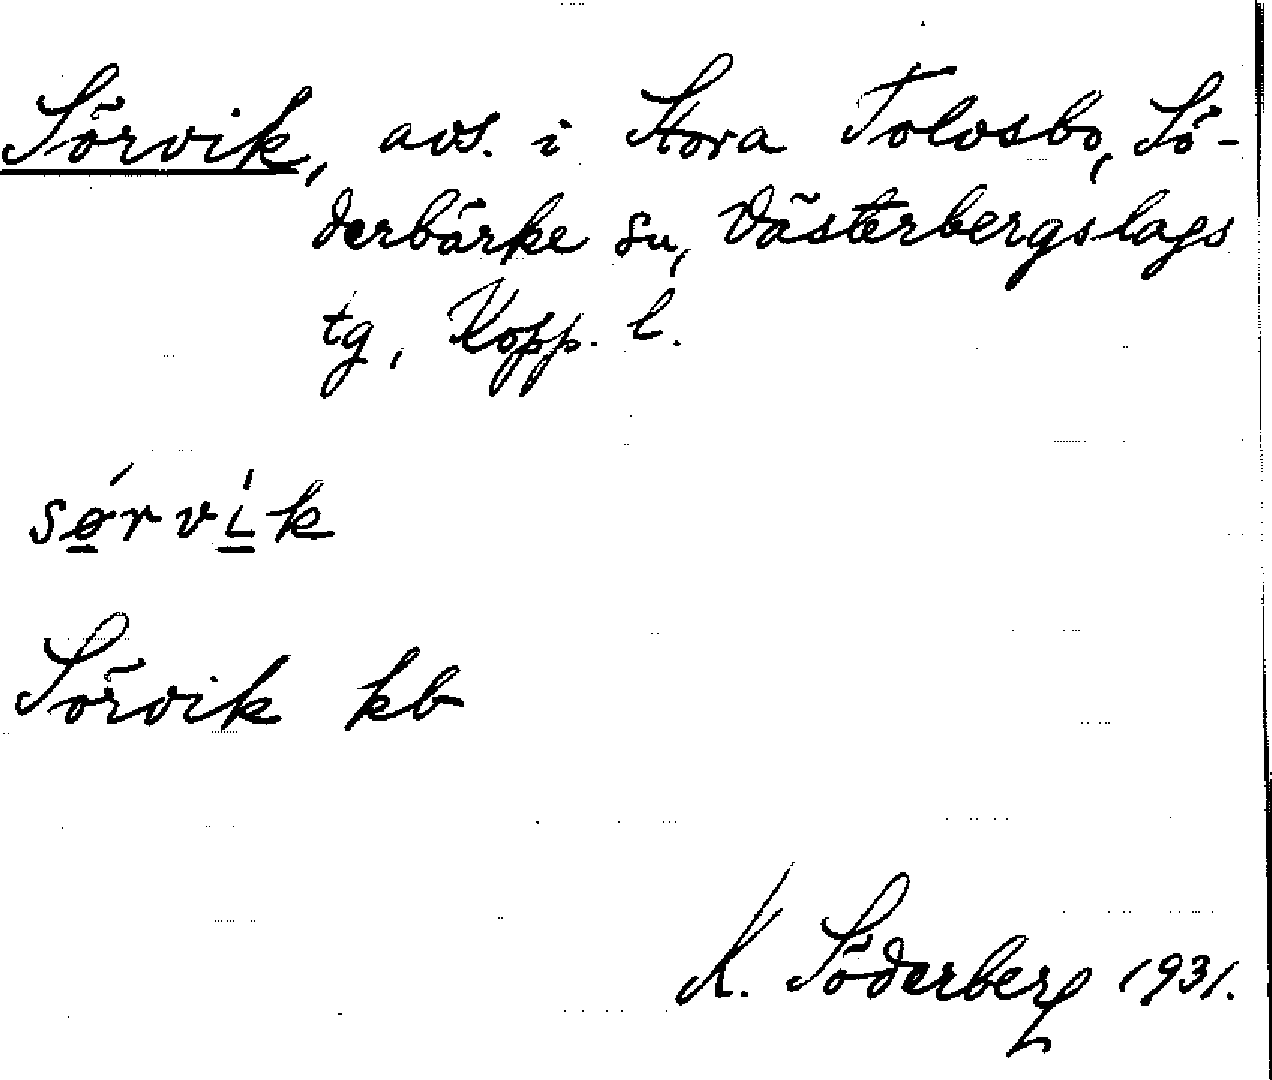 Sörvik, avs. i Stora Tolvsbo, Sö-
derbärke sn, Västerbergslags
tg, Kopp. l.
sǿrvík
Sörvik kb
K. Söderberg 1931.